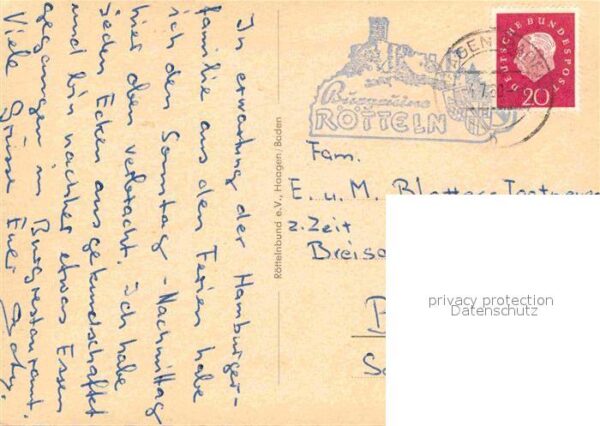 In erwartung der Hamburger-
familie aus den Ferien habe
ich den Sonntag-Nachmittag
hier oben verbracht. Ich habe
jeden Ecken ausgekundschaftet
und bin nachher etwas Essen
gegangen im Burgrestaurant.
Viele Grüsse Euer
Röttelnbund e.V., Haagen/Baden
Burgruine
RÖTTELN
DEUTSCHE BUNDESPOST
20
Fam.
E. u. M. Blatter
z. Zeit
privacy protection
Datenschutz